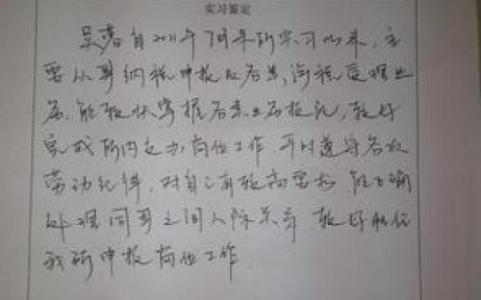 实习鉴定
吴睿自2011年7月来所实习以来,主
要从事纳税申报及各类涉税受理业
务,能较快掌握各类业务技记,较好
完成所内交办岗位工作,平时遵守各项
劳动纪律,对自己有较高要求,能正确
处理同事之间人际关系,较好胜任
我所申报岗位工作